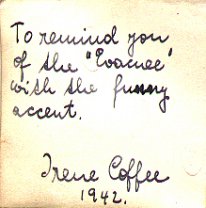 To remind you
of the "Evacuee"
with the funny
accent.
Irene Coffee
1942.